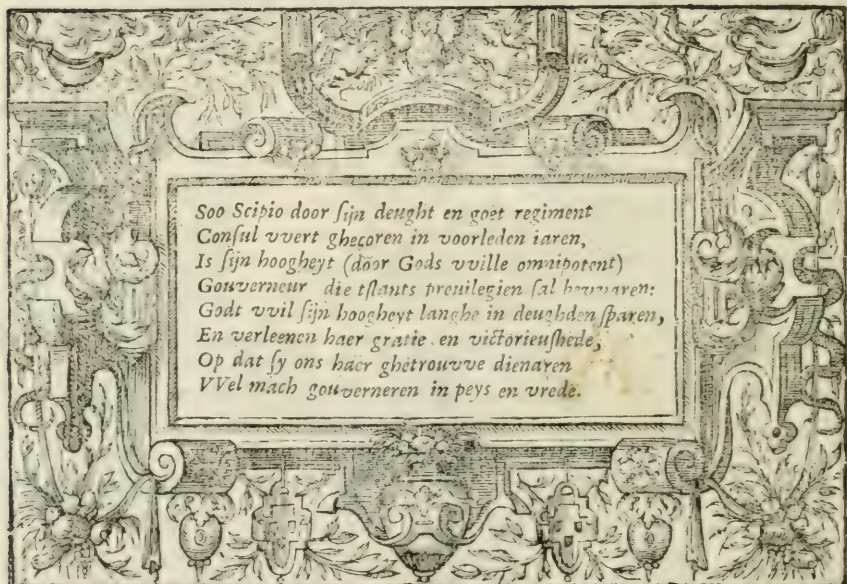 Soo Scipio door ſijn deught en goet regiment
Conſul vvert ghecoren in voorleden iaren,
Is ſijn hoogheyt (door Gods vville omnipotent)
Gouverneur die tſlants preuilegien ſal bevvaren:
Godt vvil ſijn hoogheyt langhe in deughden ſparen,
En verleenen haer gratie en victorieuſhede,
Op dat ſy ons haer ghetrouvve dienaren
VVel mach gouverneren in peys en vrede.